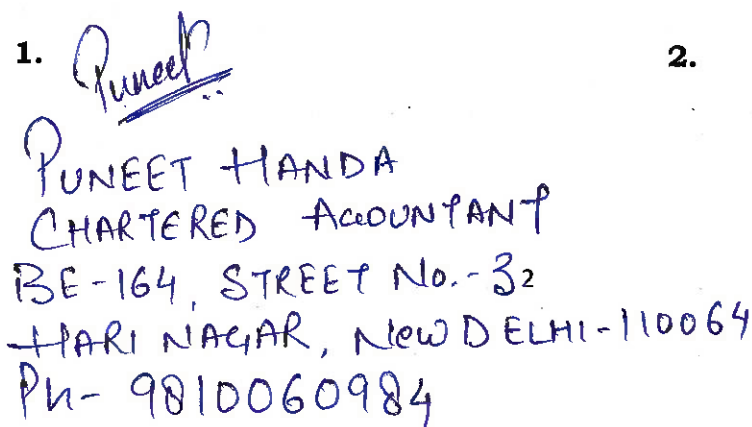 1. Puneet 2.
PUNEET HANDA
CHARTERED ACCOUNTANT
BE-164, STREET No.-32
HARI NAGAR, NEW DELHI-110064
Ph- 9810060984